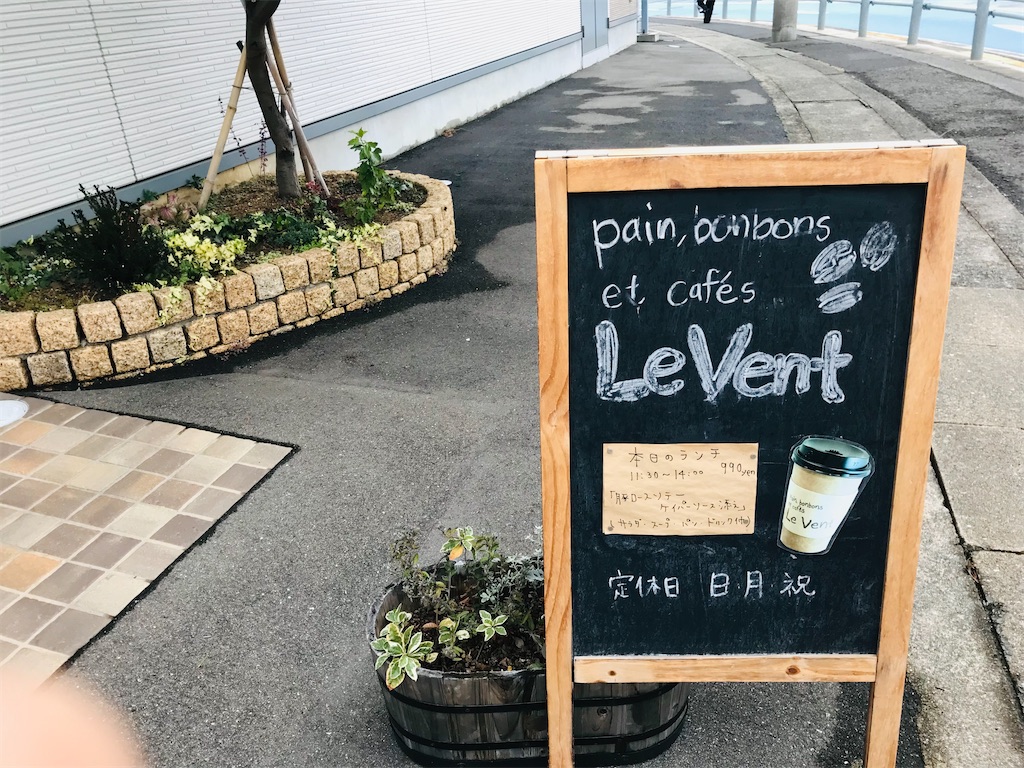 pain, bonbons
et cafés
Le Vent
本日のランチ
11:30〜14:00 990yen
「豚ロースソテー
ケイパーソース添え」
サラダ・スープ・パン・ドリンク付
bonbons
cafés
Le Vent
定休日 日・月・祝